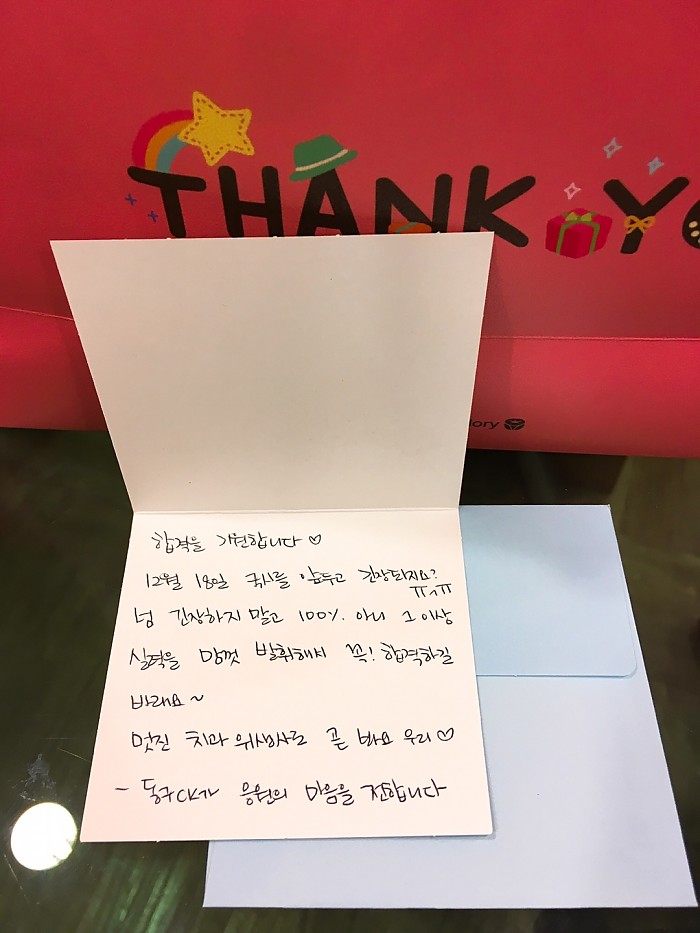 THANK YO
ory
합격을 기원합니다 ♡
12월 18일 국시를 앞두고 긴장되지요?
ㅠㅅㅠ
넘 긴장하지 말고 100%. 아니 그 이상
실력을 맘껏 발휘해서 꼭! 합격하길
바래요~
멋진 치과위생사로 곧 봐요 우리♡
- 동구CK가 응원의 마음을 전합니다